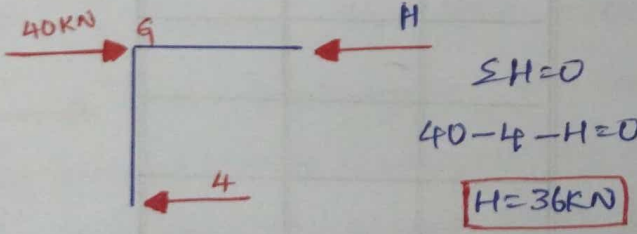 40KN G H
ΣH=0
40-4-H=0
4
H=36KN